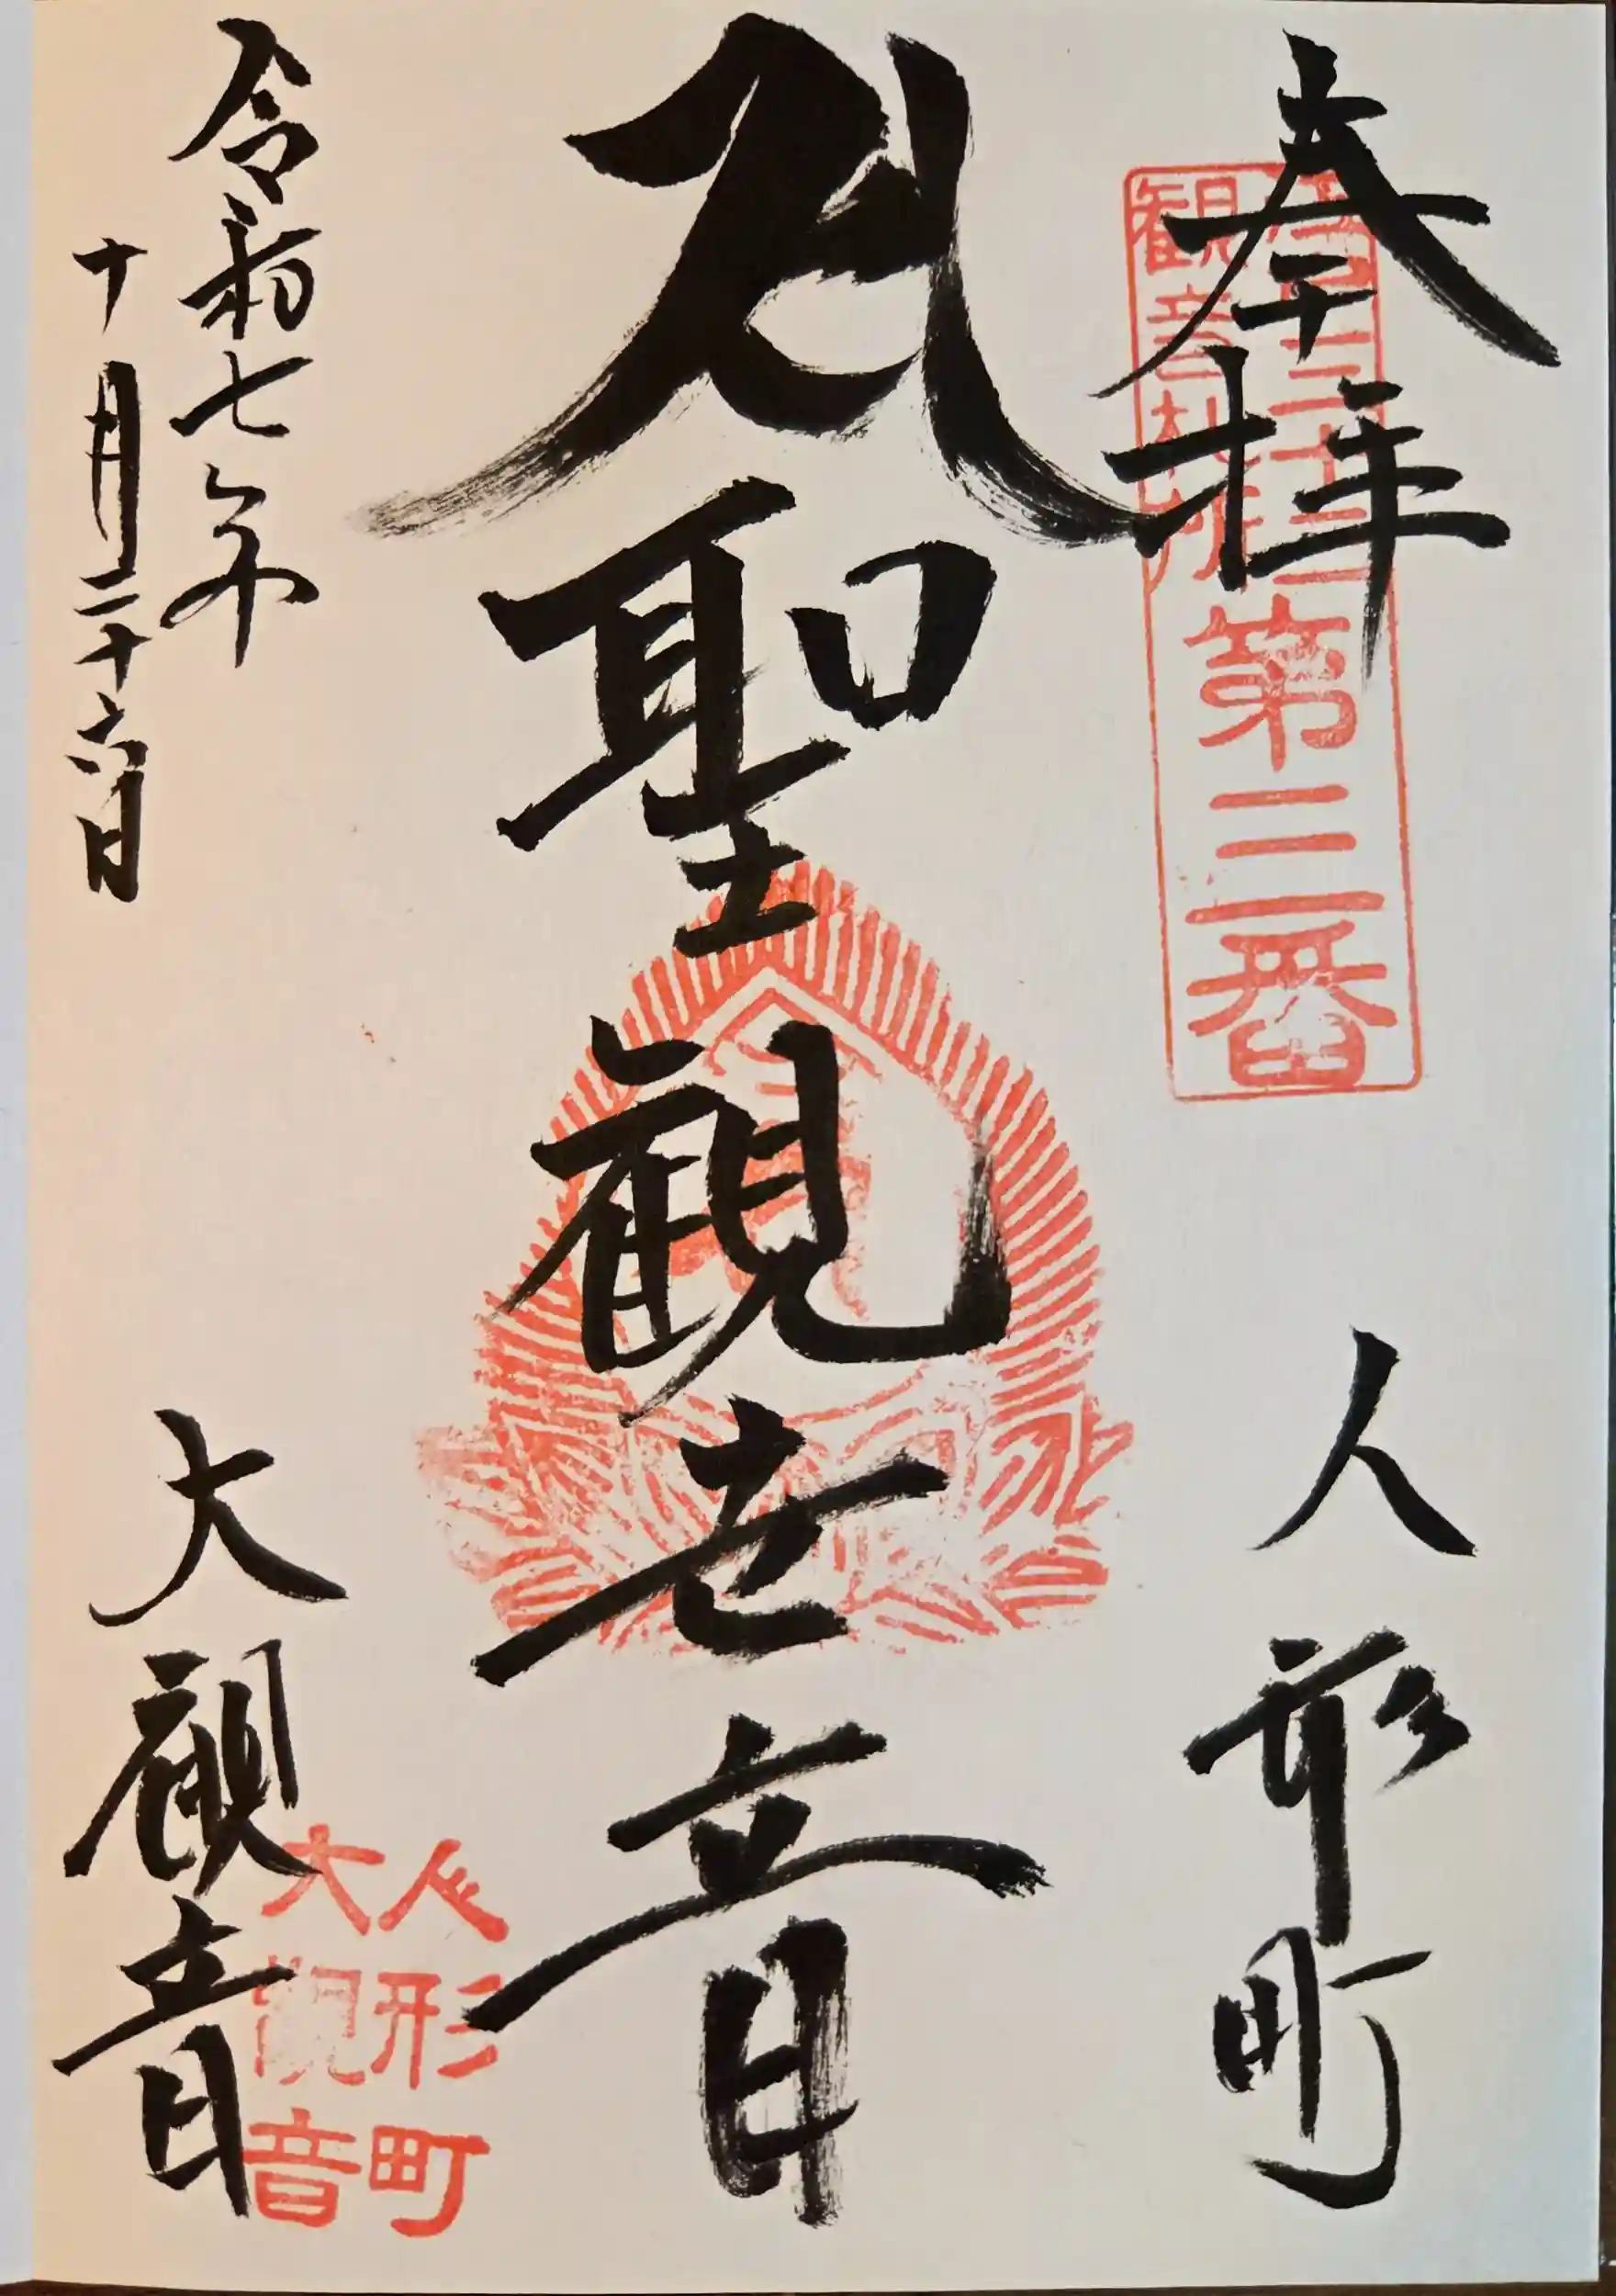 奉拝
人形町
聖観世音
令和七年
十月二十六日
大観音
江戸三十三
観音札所
第三番
人形町
大観音